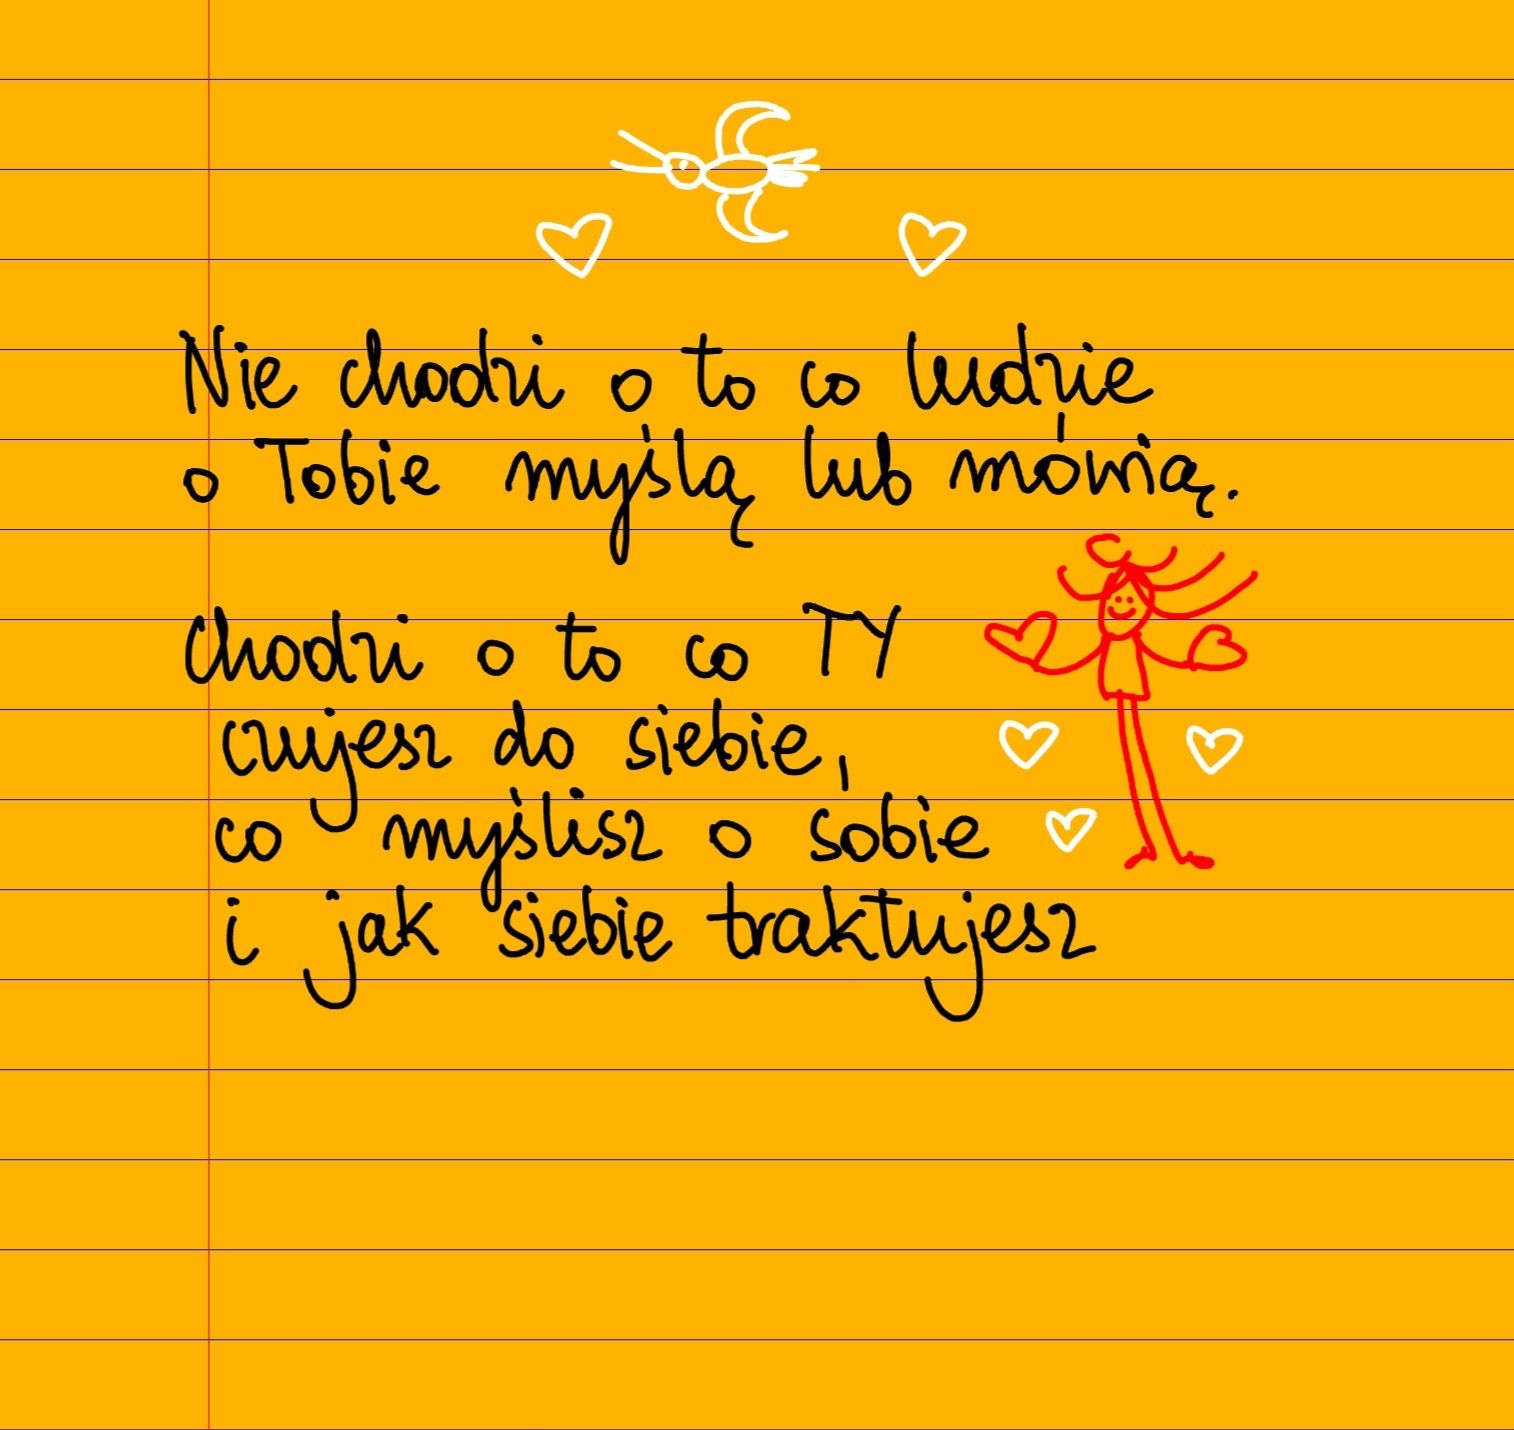 Nie chodzi o to co ludzie
o Tobie myślą lub mówią.
Chodzi o to co TY
czujesz do siebie,
co myślisz o sobie
i jak siebie traktujesz